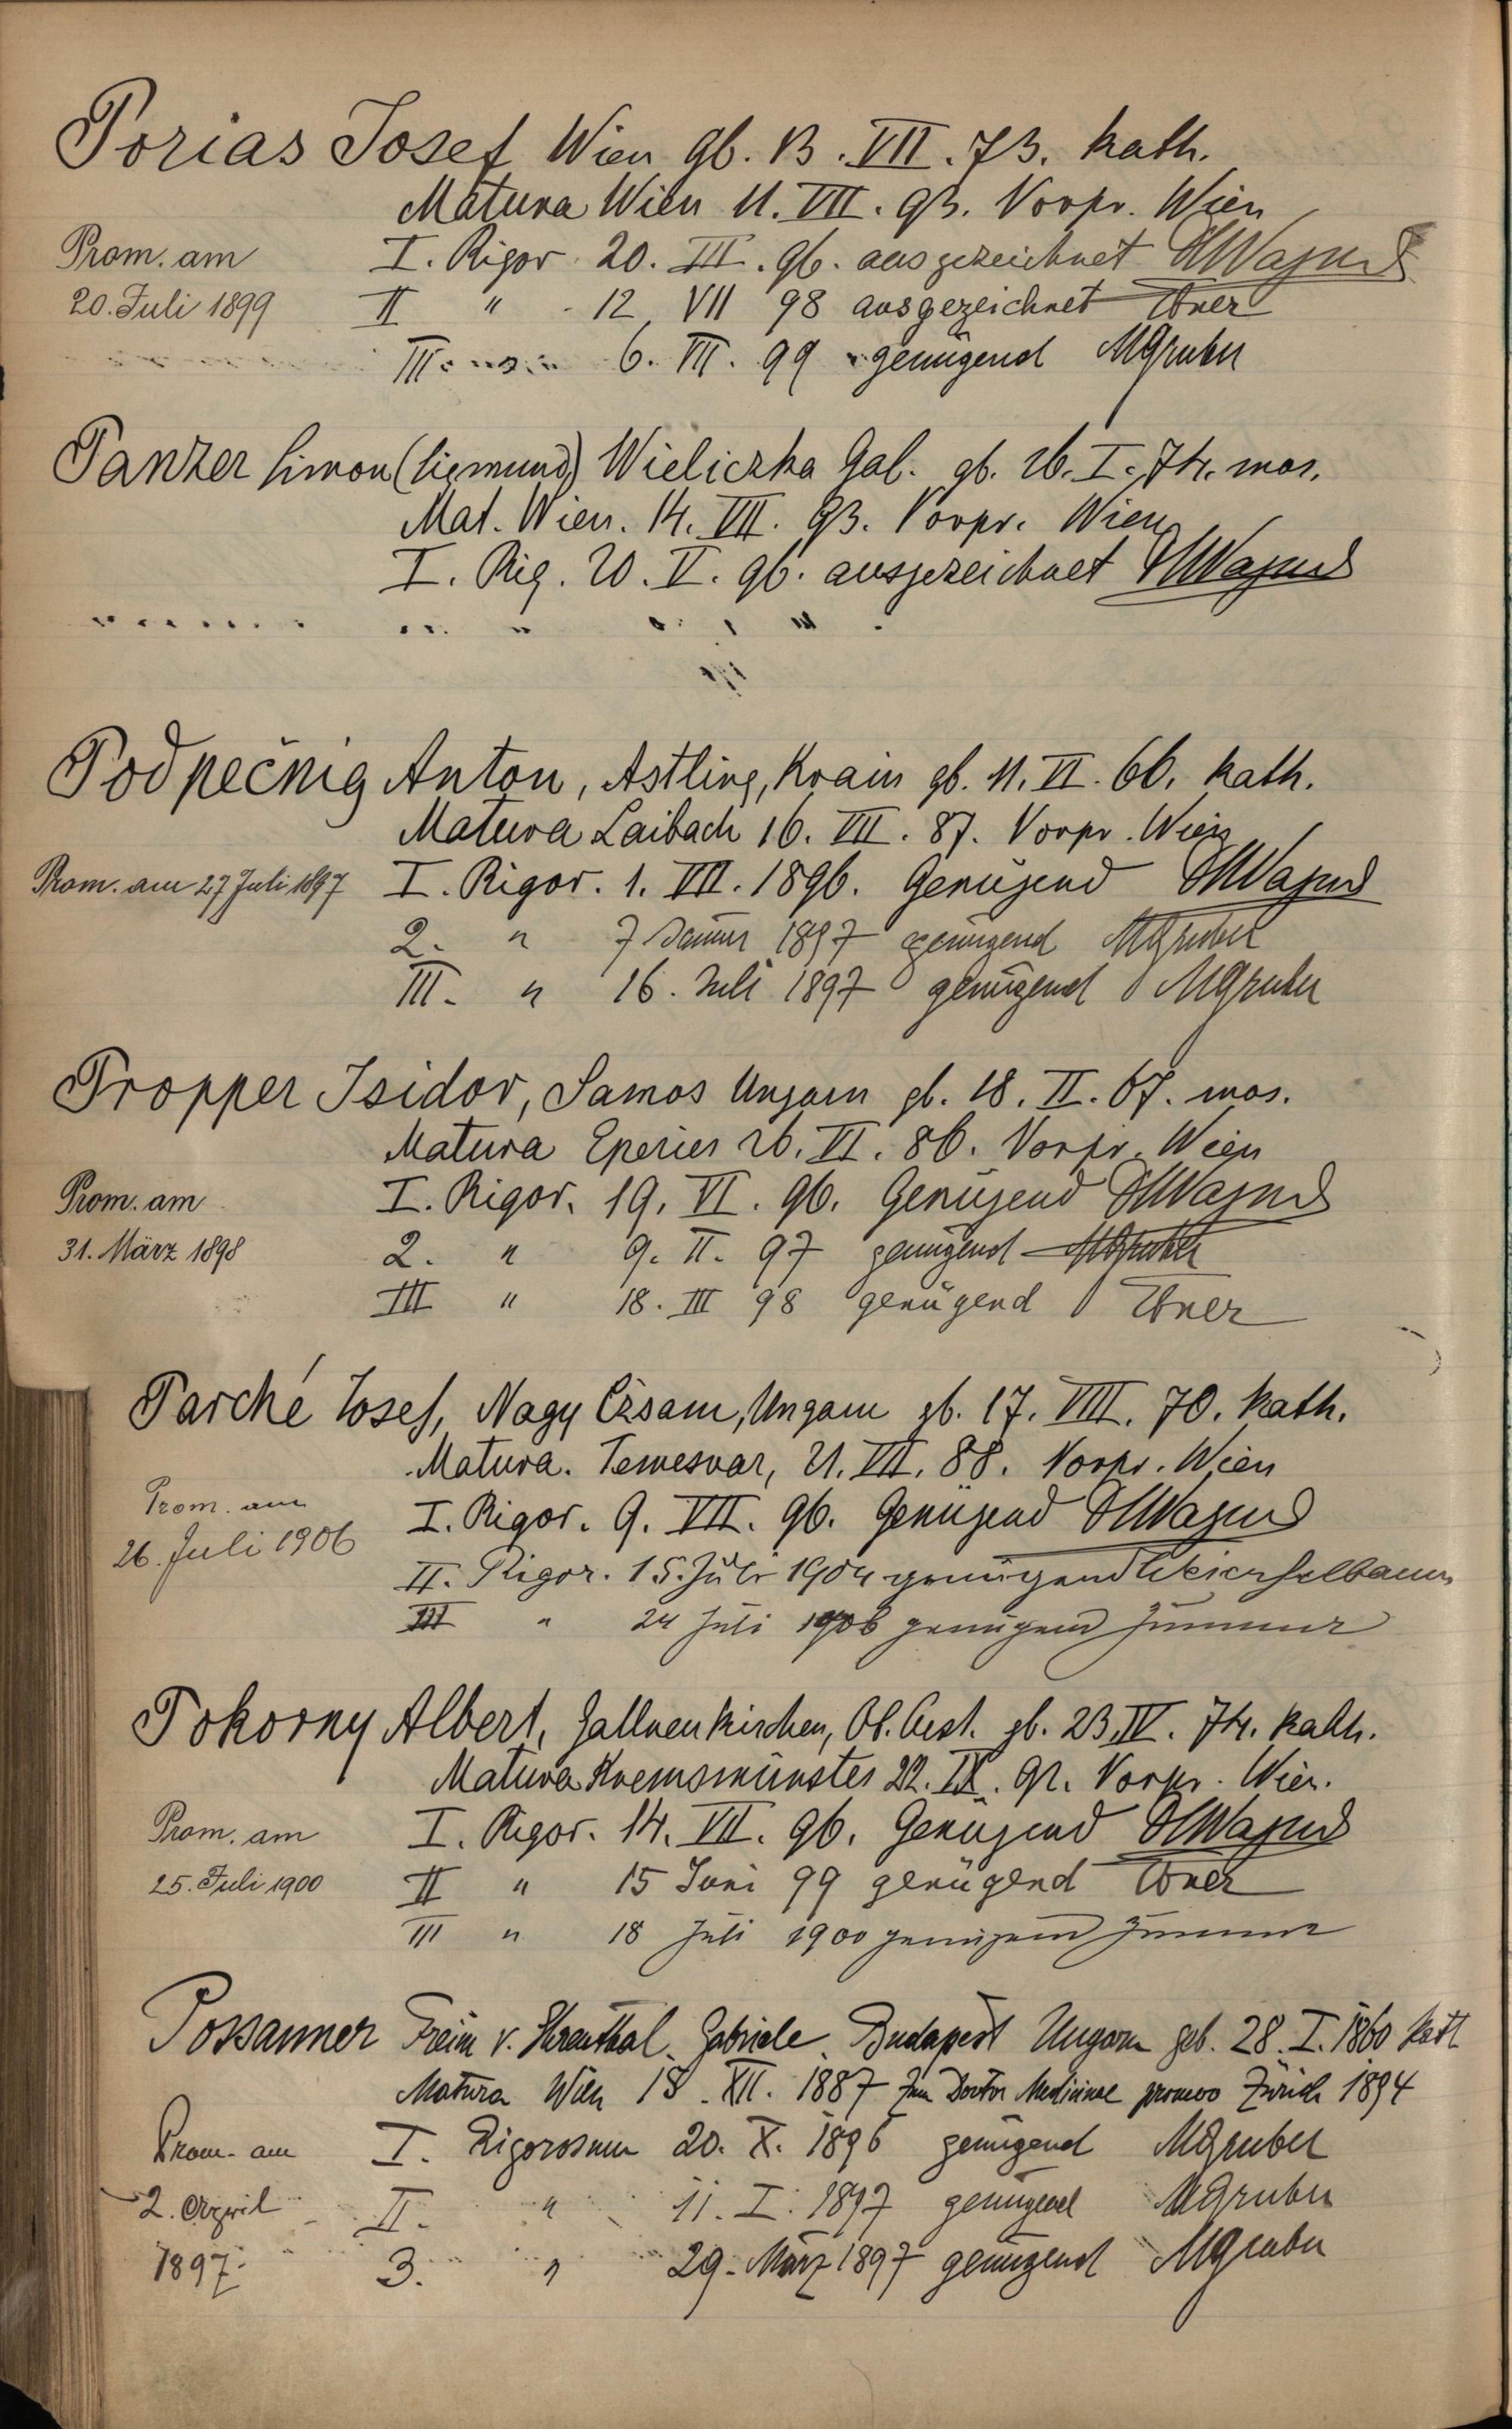 Porias Josef Wien gb. 13. VII. 73. kath.
Matura Wien 11. VII. 93. Vorpr. Wien
Prom. am I. Rigor. 20. III. 96. ausgezeichnet
20. Juli 1899 II " 12 VII 98 ausgezeichnet Ebner
III. 6. VII. 99 genügend MGruber
Panzer Simon (Sigmund) Wieliczka Gal. gb. 26. I. 74. mos.
Mat. Wien. 14. VII. 93. Vorpr. Wien
I. Rig. 20. V. 96. ausgezeichnet
Podpečnig Anton, Astling, Krain gb. 11. VI. 66. kath.
Matura Laibach 16. VII. 87. Vorpr. Wien
Prom. am 27 Juli 1897 I. Rigor. 1. VII. 1896. Genügend
2. " 7 Jänner 1897 genügend MGruber
III. " 16. Juli 1897 genügend MGruber
Propper Isidor, Samos Ungarn gb. 18. II. 67. mos.
Matura Eperies 26. VI. 86. Vorpr. Wien
Prom. am I. Rigor. 19. VI. 96. Genügend
31. März 1898 2. " 9. II. 97 genügend MGruber
III " 18. III 98 genügend Ebner
Parché Josef, Nagy Ungarn gb. 17. VIII. 70. kath.
Matura. Temesvar, 21. VII. 88. Vorpr. Wien
Prom. am I. Rigor. 9. VII. 96. Genügend
26. Juli 1906 II. Rigor. 15. Juli 1904 genügend Weichselbaum
III " 24 Juli 1906 genügend
Pokorny Albert, Gallneukirchen, Ob. Oest. gb. 23. IV. 74. kath.
Matura Kremsmünster 22. IX. 92. Vorpr. Wien.
Prom. am I. Rigor. 14. VII. 96. Genügend
25. Juli 1900 II " 15 Juni 99 genügend Ebner
III " 18 Juli 1900 genügend
Possanner Freiin v. Ehrenthal Gabriele Budapest Ungarn geb. 28. I. 1860 kath
Matura Wien 15. XII. 1887 zum Doctor Medicinae promov Zürich 1894
Prom. am I. Rigorosum 20. X. 1896 genügend MGruber
2. April II. " 11. I. 1897 genügend MGruber
1897. 3. " 29. März 1897 genügend MGruber